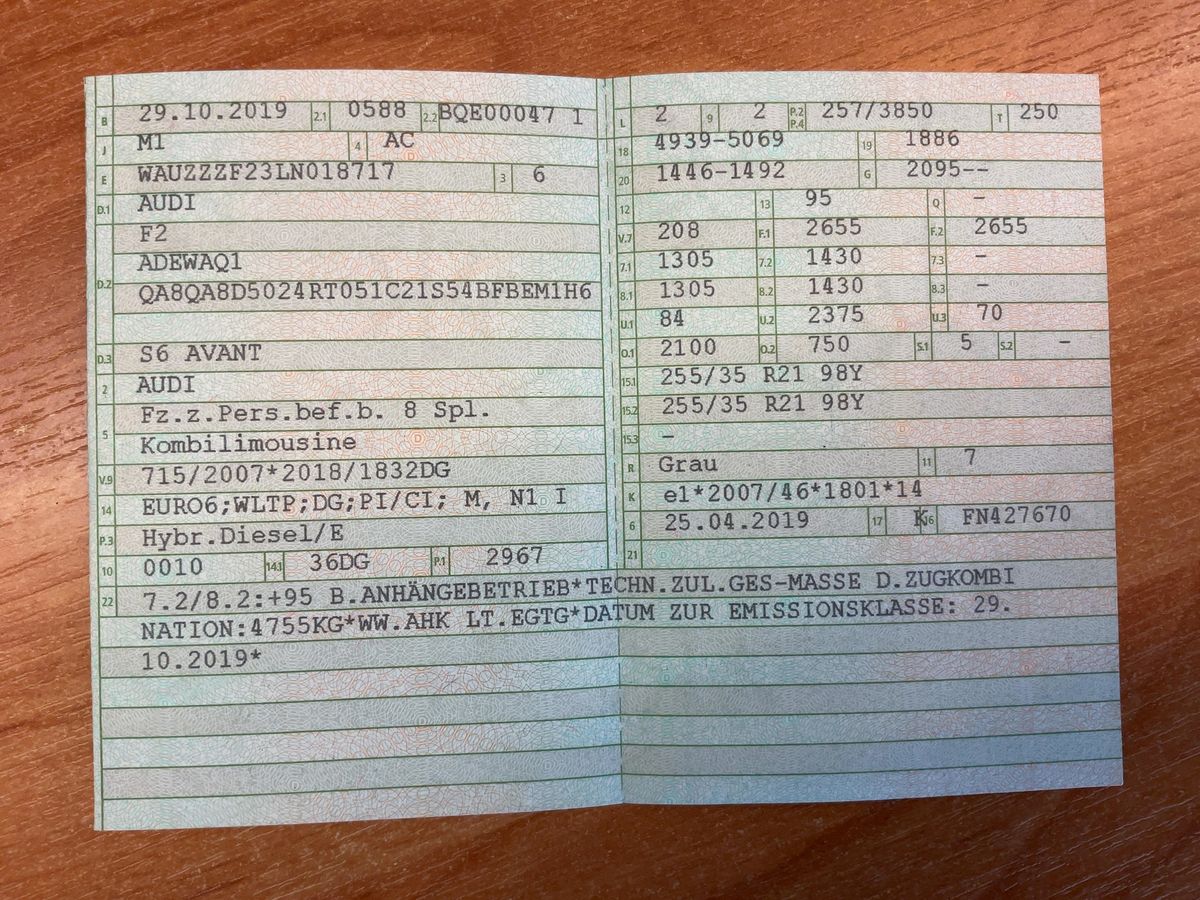 B 29.10.2019 2.1 0588 2.2 BQE00047 1
J M1 4 AC
E WAUZZZF23LN018717 3 6
D.1 AUDI
F2
D.2 ADEWAQ1
QA8QA8D5024RT051C21S54BFBEM1H6
D.3 S6 AVANT
2 AUDI
5 Fz.z.Pers.bef.b. 8 Spl.
Kombilimousine
V.9 715/2007*2018/1832DG
14 EURO6;WLTP;DG;PI/CI; M, N1 I
P.3 Hybr.Diesel/E
10 0010 14.1 36DG P.1 2967
L 2 9 2 P.2 P.4 257/3850 T 250
18 4939-5069 19 1886
20 1446-1492 G 2095--
12 13 95 Q -
V.7 208 F.1 2655 F.2 2655
7.1 1305 7.2 1430 7.3 -
8.1 1305 8.2 1430 8.3 -
U.1 84 U.2 2375 U.3 70
O.1 2100 O.2 750 S.1 5 S.2 -
15.1 255/35 R21 98Y
15.2 255/35 R21 98Y
15.3 -
R Grau 11 7
K e1*2007/46*1801*14
6 25.04.2019 17 K 16 FN427670
21
22 7.2/8.2:+95 B.ANHÄNGEBETRIEB*TECHN.ZUL.GES-MASSE D.ZUGKOMBI
NATION:4755KG*WW.AHK LT.EGTG*DATUM ZUR EMISSIONSKLASSE: 29.
10.2019*